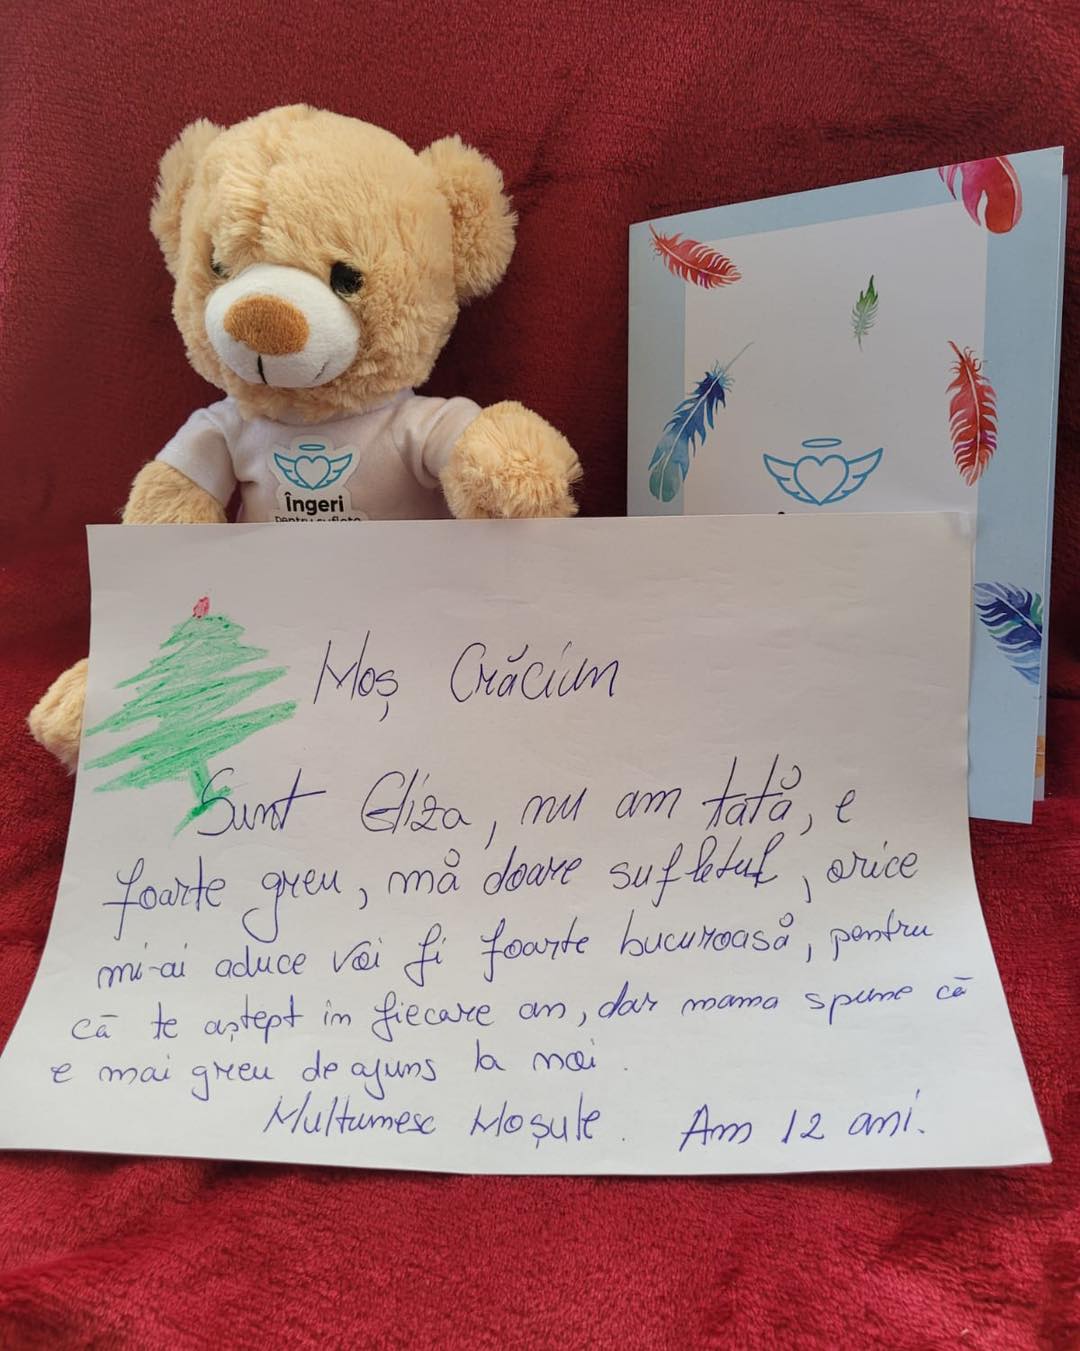 Îngeri
pentru suflete
Moș Crăciun
Sunt Eliza, nu am tată, e
foarte greu, mă doare sufletul, orice
mi-ai aduce voi fi foarte bucuroasă, pentru
că te aștept în fiecare an, dar mama spune că
e mai greu de ajuns la noi.
Multumesc Moșule. Am 12 ani.